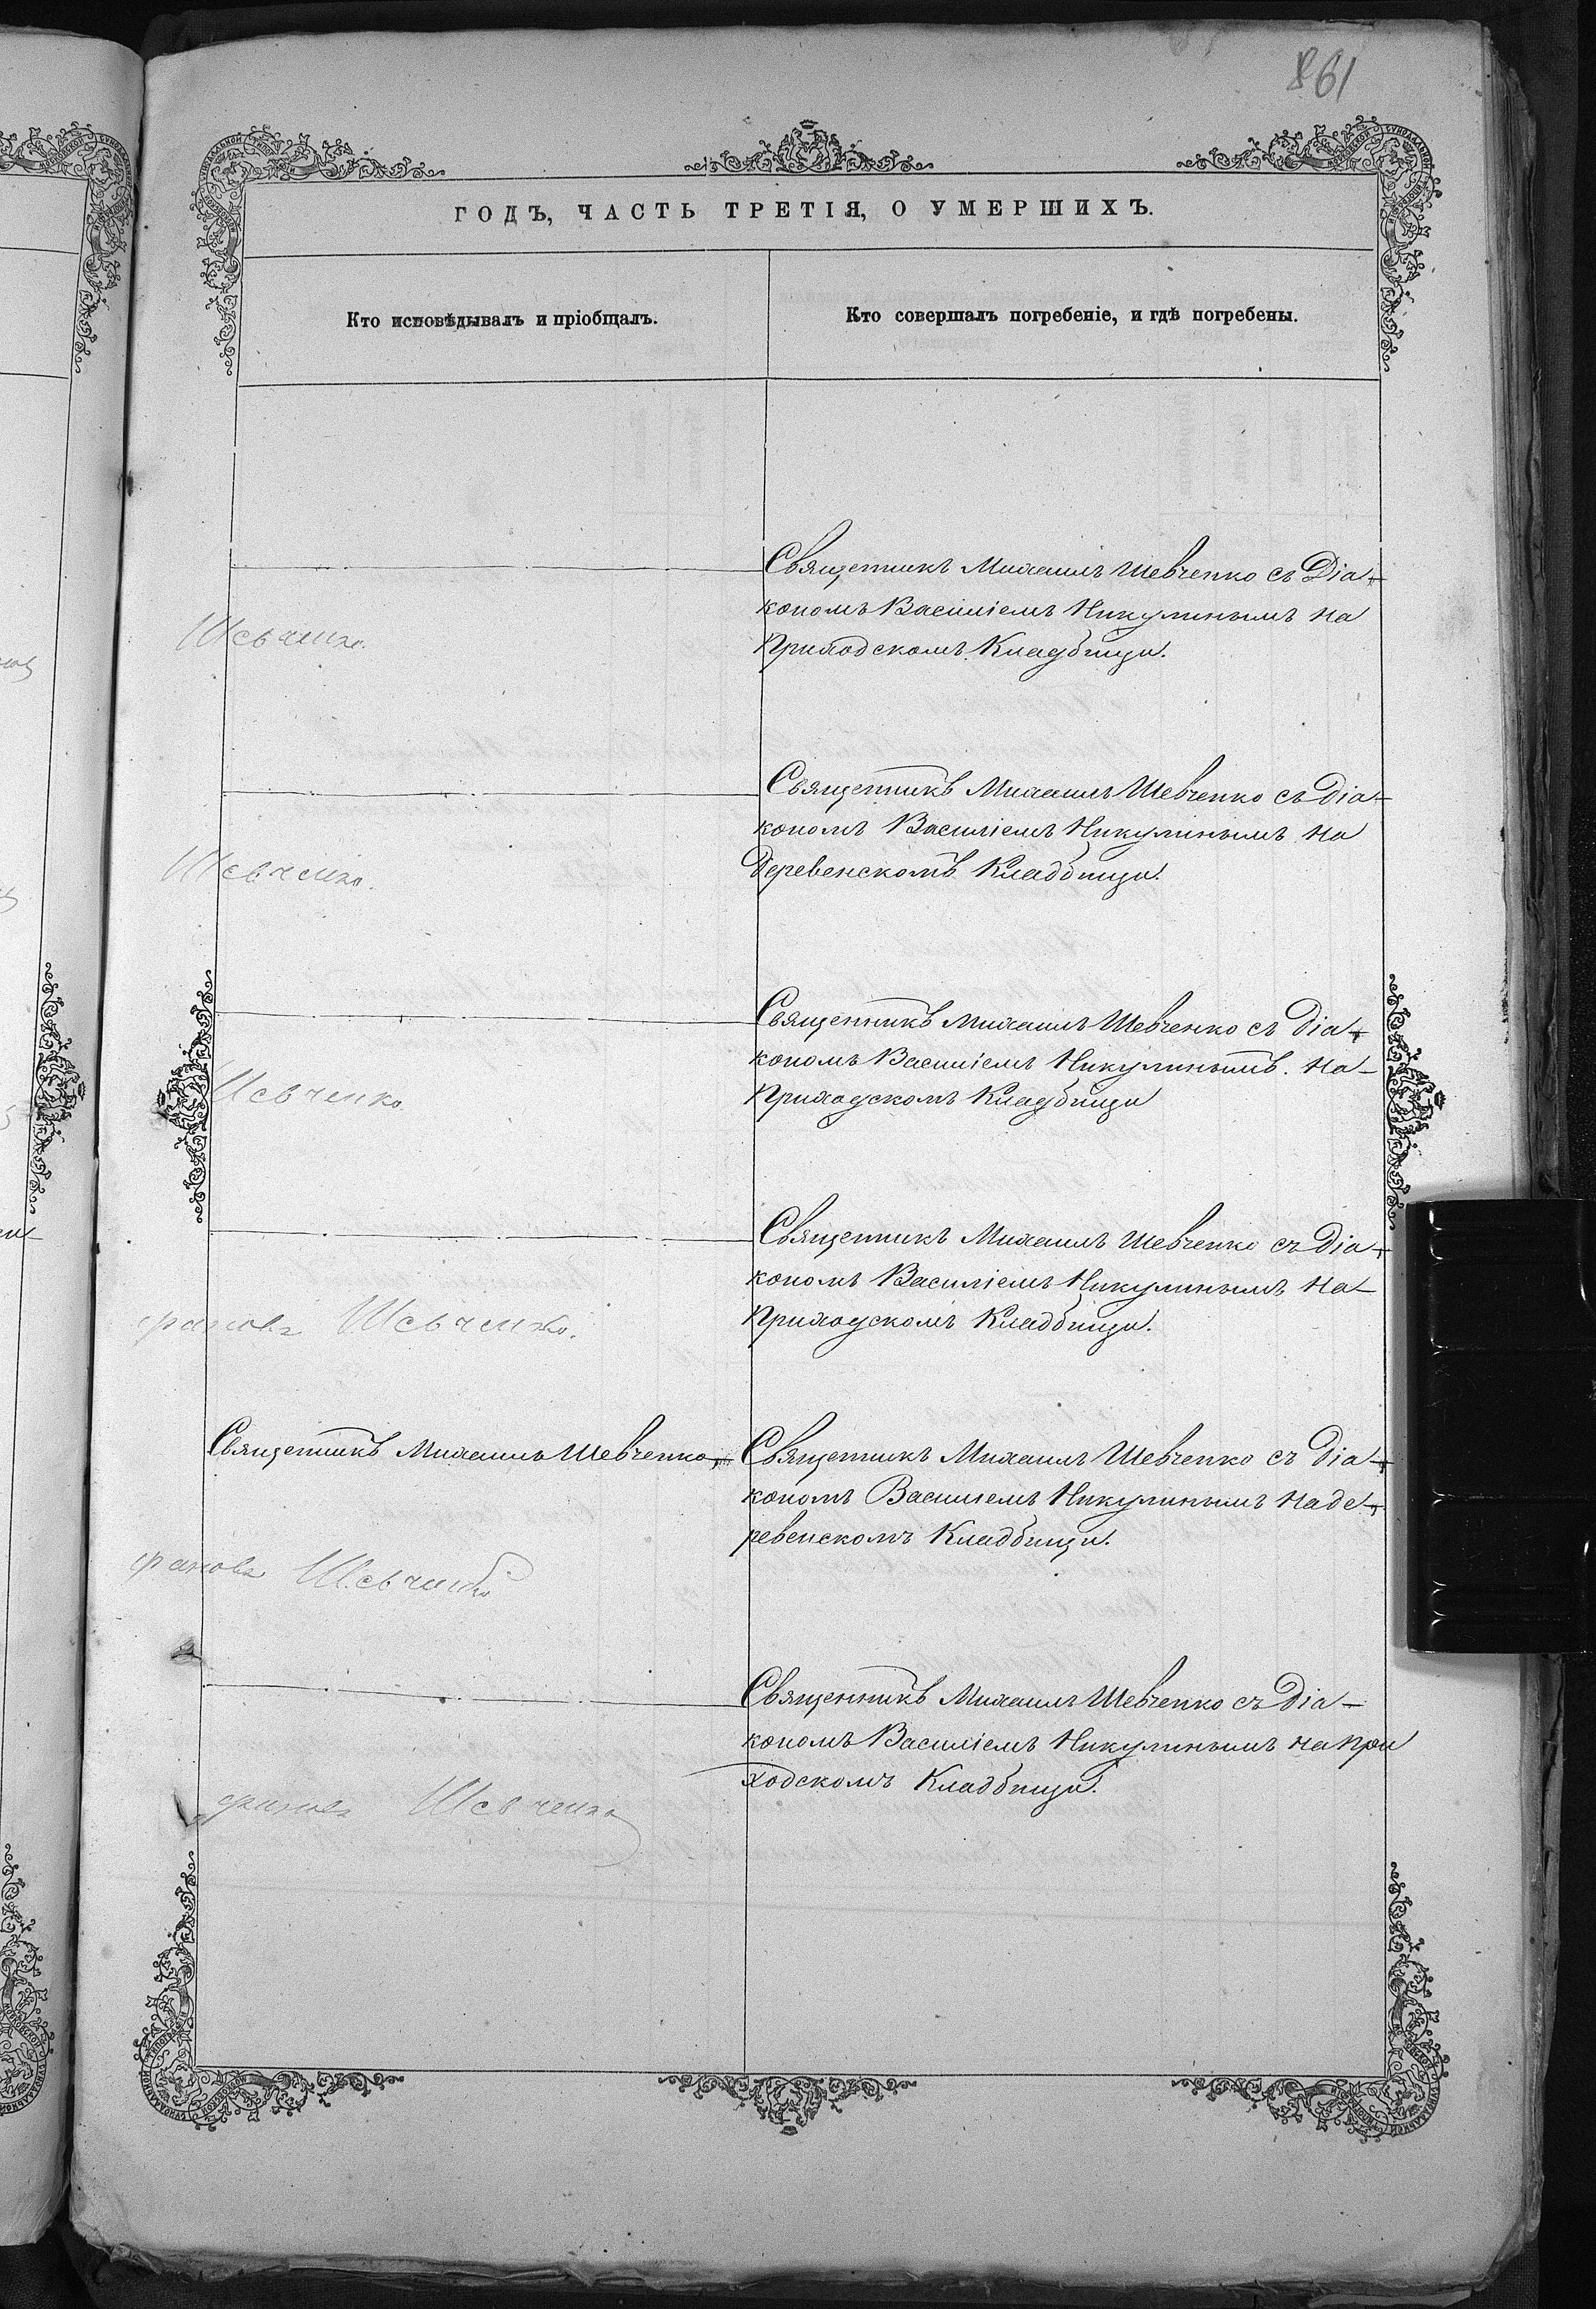 861
ГОДЪ, ЧАСТЬ ТРЕТІЯ, О УМЕРШИХЪ.
Кто исповѣдывалъ и пріобщалъ.
Кто совершалъ погребеніе, и гдѣ погребены.
Священникъ Михаилъ Шевченко съ Діа-
кономъ Василіемъ Никулинымъ на
Приходскомъ Кладбищи.
Шевченко.
Священникъ Михаилъ Шевченко съ Діа-
кономъ Василіемъ Никулинымъ на
Деревенскомъ Кладбищи.
Шевченко.
Священникъ Михаилъ Шевченко съ Діа-
кономъ Василіемъ Никулинымъ. На-
Приходскомъ Кладбищи
Шевченко
Священникъ Михаилъ Шевченко съ Діа-
кономъ Василіемъ Никулинымъ На-
Приходскомъ Кладбищи.
Шевченко.
Священникъ Михаилъ Шевченко,
Священникъ Михаилъ Шевченко съ Діа-
кономъ Василіемъ Никулинымъ на де-
ревенскомъ Кладбищи.
Шевченко
Священникъ Михаилъ Шевченко съ Діа-
кономъ Василіемъ Никулинымъ на при
ходскомъ Кладбищи.
Шевченко